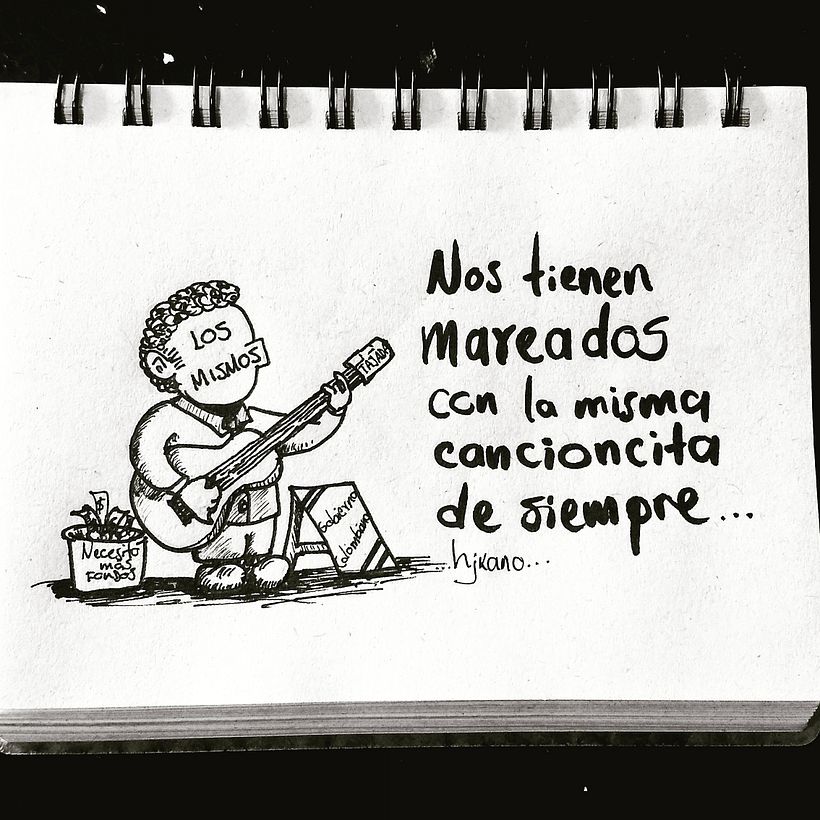 LOS
MISMOS
TAJADA
Necesito
más
FONDOS
Gobierno
Colombiano
Nos tienen
mareados
con la misma
cancioncita
de siempre...
...hjkano...